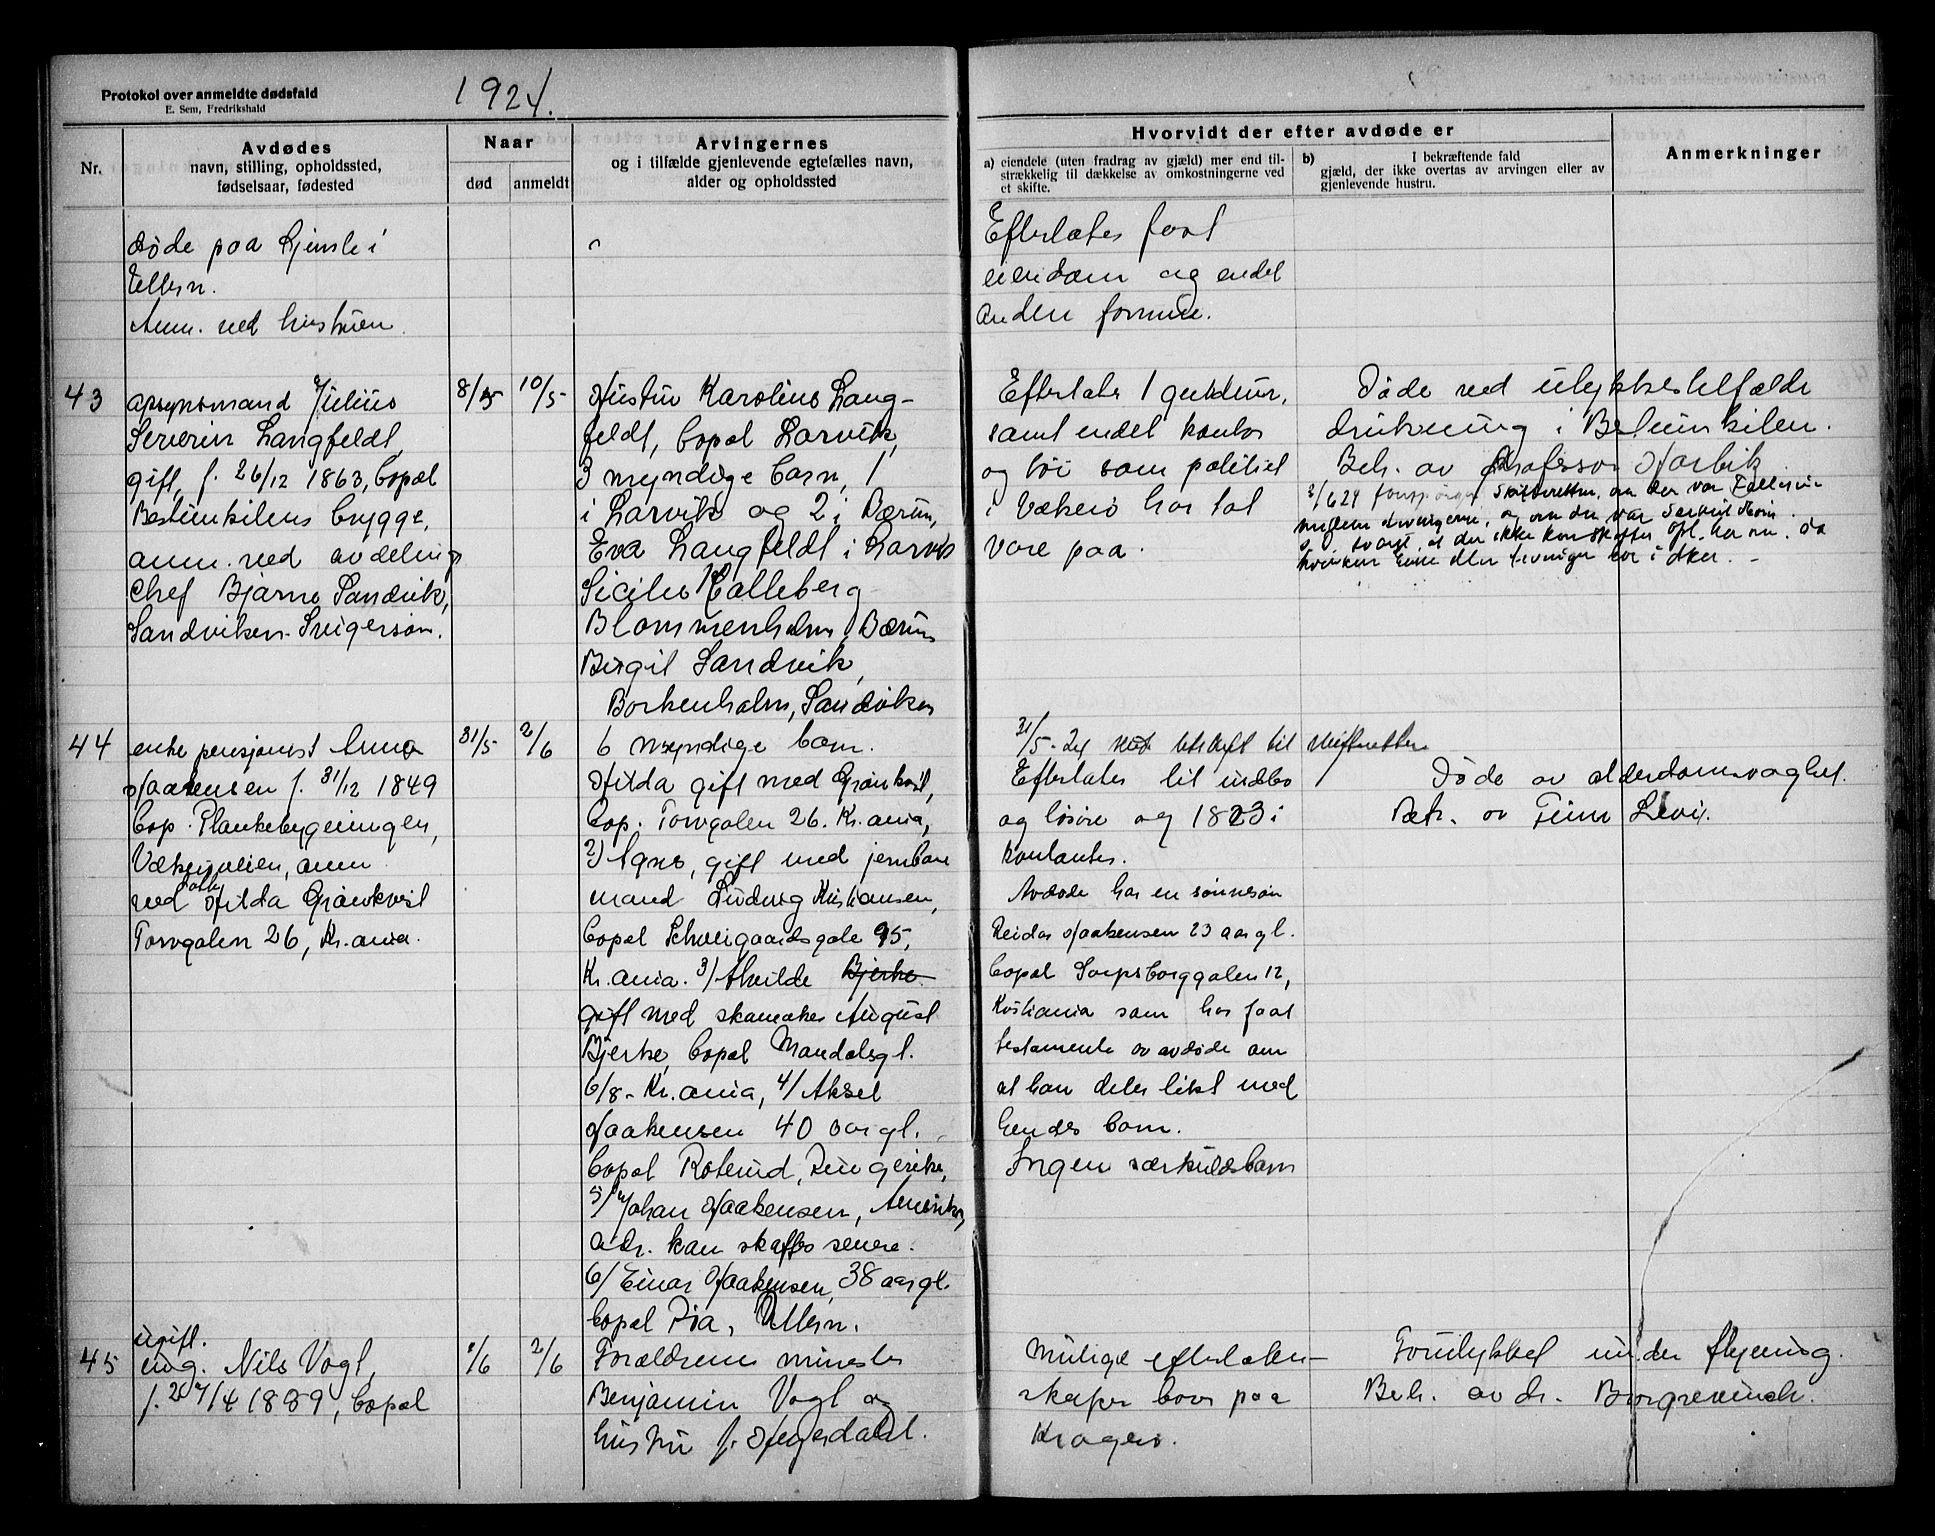 Protokol over anmeldte dødsfald
E. Sem, Fredrikshald
1924.
Nr.
Avdødes
navn, stilling, opholdssted,
fødselsaar, fødested
Naar
død
anmeldt
Arvingernes
og i tilfælde gjenlevende egtefælles navn,
alder og opholdssted
Hvorvidt der efter avdøde er
a) eiendele (uten fradrag av gjæld) mer end til-
strækkelig til dækkelse av omkostningerne ved
et skifte.
b) I bekræftende fald
gjæld, der ikke overtas av arvingen eller av
gjenlevende hustru.
Anmerkninger
døde paa Ljensle i
Ullern.
Anm. ved hustruen.
Efterlates fast
eiendom og endel
anden formue.
43
opsynsmand Julius
Severin Langfeldt,
gift, f. 26/12 1863, bopæl
Bestumkilens brygge,
anm. ved avdelings
chef Bjarne Sandvik,
Sandviken. Svigersøn.
8/5
10/5
Hustru Karoline Lang-
feldt, bopæl Larvik,
3 myndige barn, 1
i Larvik og 2 i Bærum,
Eva Langfeldt i Larvik
Sicilie Halleberg
Blommenholm, Bærum
Birgit Sandvik,
Borkenholm, Sandviken
Efterlater 1 guldur,
samt endel kontor
og tøi som politiet
i Vækerø har tat
vare paa.
Døde ved ulykkestilfælde
drukning i Bestumkilen.
Beh. av professor Harbitz
2/6 24 forespørger Skifteretten, om der var
mellem arvingerne, og om der var særkuldsbarn.
svart, at der ikke kan skaffes opl. herom, da
hverken enke eller arvinger bor i Aker. -
44
enke pensjonist Anna
Haakensen f. 31/12 1849
bop. Plankebygningen,
Vækerøveien, anm.
ved datter Hilda Grønkvist
Torvgaten 26, Kr.ania.
31/5
2/6
6 myndige barn.
Hilda gift med Grønkvist,
bop. Torvgaten 26. Kr.ania,
2) Agnes, gift med jernbane
mand Ludvig Kristiansen,
bopæl Schweigaardsgate 95,
Kr.ania. 3/ Alvilde Bjerke
gift med skomaker August
Bjerke, bopæl Mandalsgt.
6/8 - Kr.ania, 4/ Aksel
Haakensen 40 aar gl.
bopæl Roterud, Ringerike,
5/ Johan Haakensen, Amerika,
adr. kan skaffes senere.
6/ Einar Haakensen, 38 aar gl.
bopæl Røa, Ullern.
31/5-24 utskrift til skifteretten
Efterlater lit indbo
og løsøre og 1823 i
kontanter.
Avdøde har en sønnesøn
Reidar Haakensen 23 aar gl.
bopæl Sarpsborggaten 12,
Kristiania som har faat
testamente av avdøde om
at han deler likt med
hendes barn.
Ingen særkuldsbarn
Døde av alderdomsvaghet.
Beh. av Levi.
45
ugift.
ing. Nils Vogt,
f. 27/4 1889, bopæl
1/6
2/6
Forældrene minister
Benjamin Vogt og
hustru f. Heyerdahl.
Mulige efterlaten-
skaper bor paa
Kragerø.
Forulykket under flyvning.
Beh. av dr. Borgrevinck.